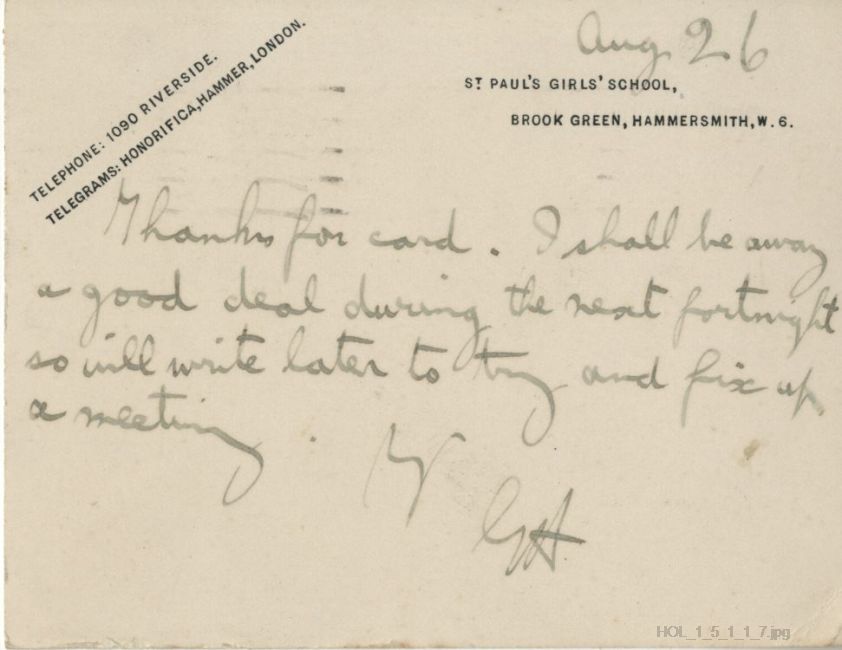 Aug 26
TELEPHONE: 1090 RIVERSIDE.
TELEGRAMS: HONORIFICA, HAMMER, LONDON.
ST PAUL'S GIRLS' SCHOOL,
BROOK GREEN, HAMMERSMITH, W. 6.
Thanks for card. I shall be away
a good deal during the next fortnight
so will write later to try and fix up
a meeting.
GH
HOL_1_5_1_1_7.jpg